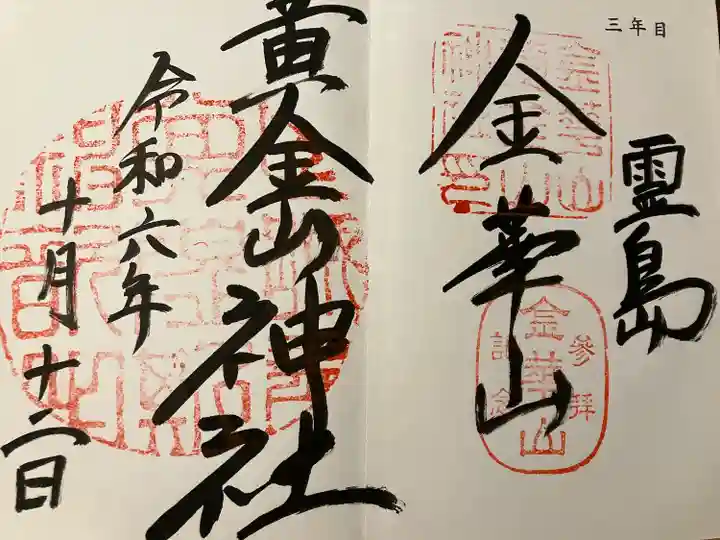 三年目
霊島
金華山
参拝
金華山
記念
黄金山神社
令和六年
十月十二日